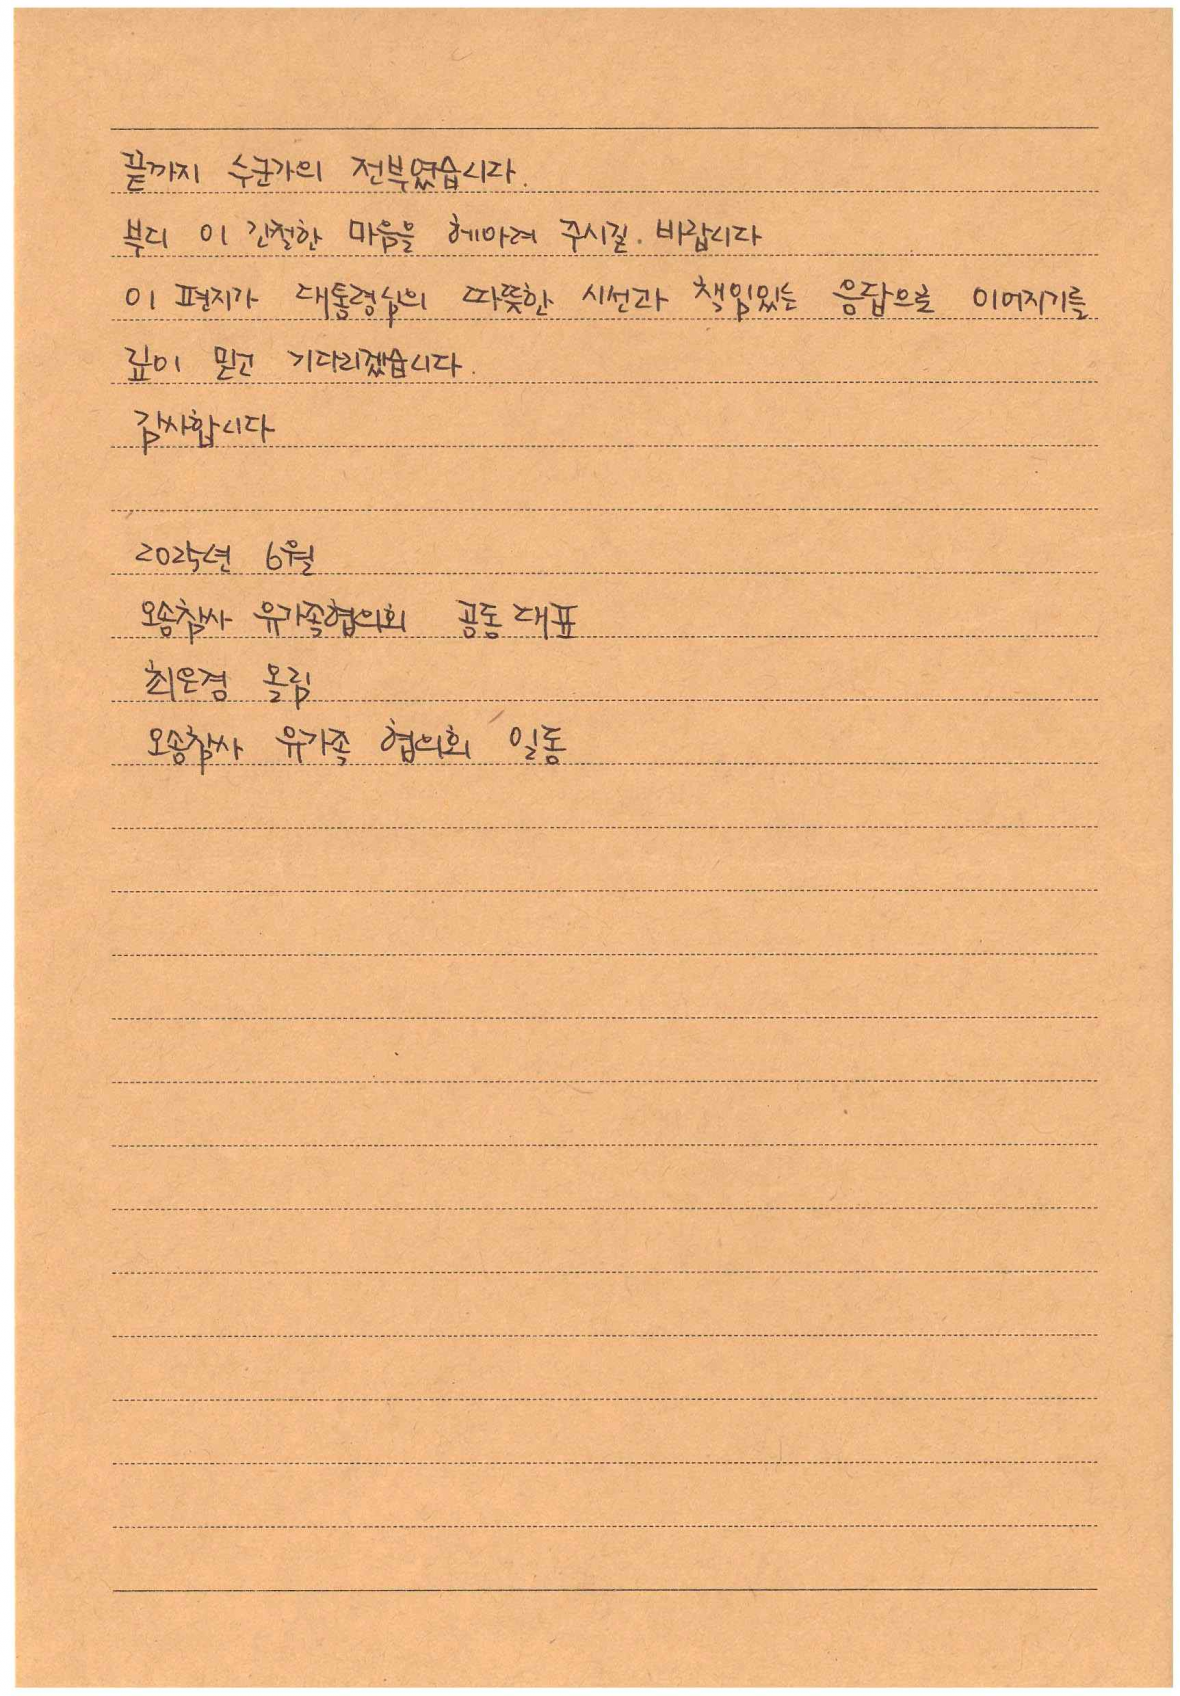 끝까지 누군가의 전부였습니다.
부디 이 간절한 마음을 헤아려 주시길. 바랍니다
이 편지가 대통령님의 따뜻한 시선과 책임있는 응답으로 이어지기를
깊이 믿고 기다리겠습니다.
감사합니다
2025년 6월
오송참사 유가족협의회 공동대표
최은경 올림
오송참사 유가족 협의회 일동